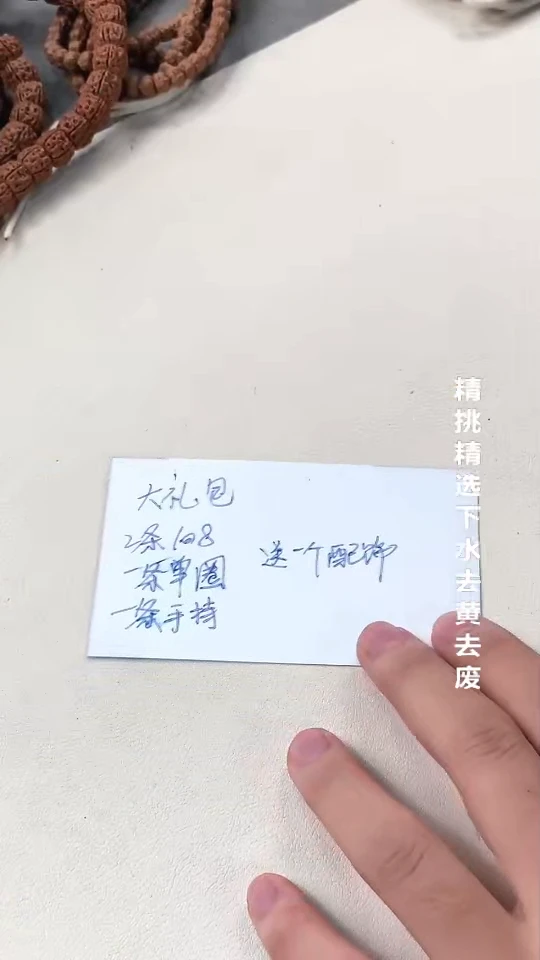 大礼包
2条108
一条单圈
一条手持
送一个配饰
精挑精选下水去黄去废